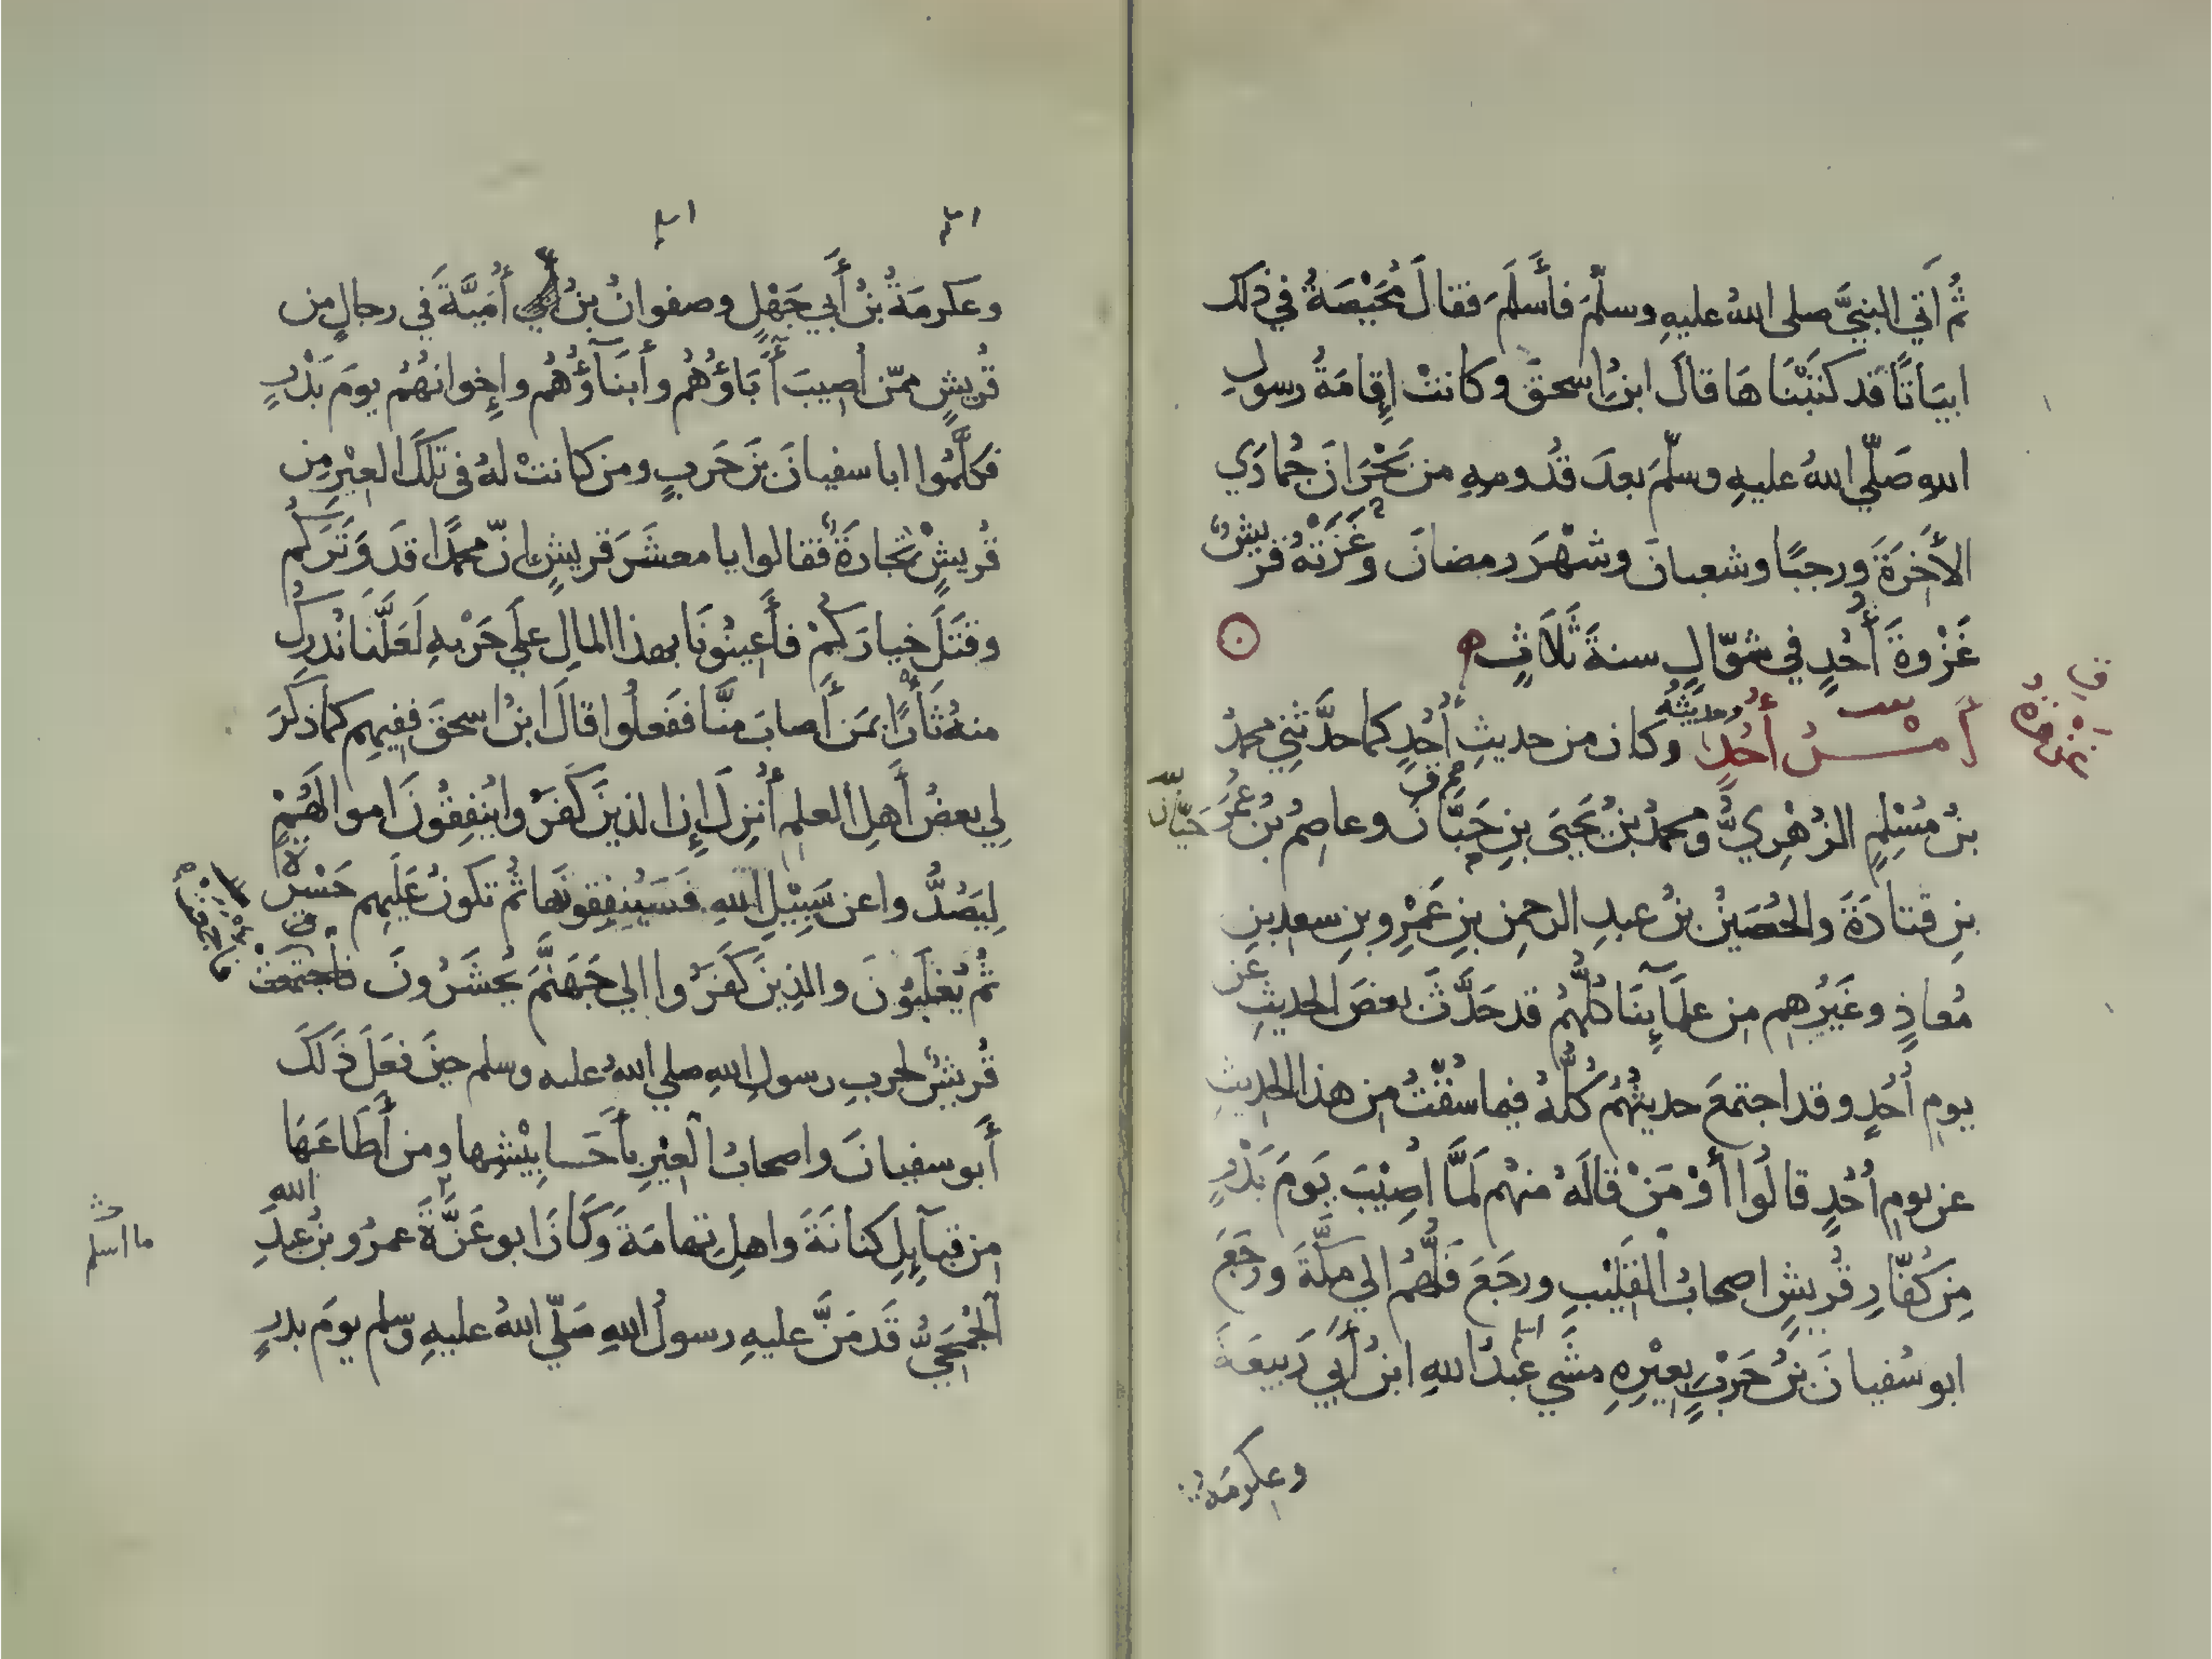 ثُمَّ اَتي النبيَّ صلى اللهُ عليهِ وسلّمَ فأَسلَمَ فقالَ مُحَيْصَةُ في ذلك
ابيَاتًا قد كتَبْنَاهَا قالَ ابنُ اسحقَ وكانتْ إقامَةُ رسولِ
اللهِ صَلّي اللهُ عليهِ وسلّمَ بعدَ قدُومِهِ من نَجْرَانَ جُمادَي
الأَخِرَةَ ورجبًا وشعبانَ وشهْرَ رمضانَ وغَزَتْهُ قريشٌ
غَزْوةَ أُحُدٍ في شوّالٍ سنةَ ثَلَاثٍ
أمرُ أُحُدٍ وكان من حديثِ أُحُدٍ كما حدَّثنِي محمدُ
بنُ مُسْلِمٍ الزهْرِيُّ ومحمدُ بنُ يَحيَى بنِ حَبَّانَ وعاصِمُ بنُ عُمَرَ
حَبَّانَ
بنِ قتادَةَ والحُصَيْنُ بنُ عبدِ الرحمنِ بنِ عَمْرِو بنِ سعدِ بنِ
مُعاذٍ وغَيرُهِم مِن علمَآئِنَا كلُّهُم قد حَدَّثَ بعضَ الحديثِ عن
يومِ أُحُدٍ وقد اجتمعَ حديثُهُم كُلُّهُ فيما سُقْتُ مِن هذا الحديثِ
عن يومِ أُحُدٍ قالُوا أوْ مَنْ قالَهُ منهُم لَمَّا أُصِيْبَ يَومَ بَدْرٍ
مِن كُفّارِ قُريشٍ اصحابُ القَلِيْبِ ورجَعَ فَلُّهُم الي مكّةَ ورَجَعَ
ابو سُفيانَ بنُ حَرْبٍ بِعِيْرِهِ مشَي عَبدُ اللهِ ابنُ أَبي رَبيعَةَ
وعِكرمَةُ
وعكرمَةُ بنُ أَبي جَهْلٍ وصفوانُ بنُ أُمَيَّةَ في رجالٍ من
قُريشٍ ممّن أُصيبَ أٓبَاؤُهُم وأَبنَآؤُهُم وإِخوانهُم يومَ بَدْرٍ
فكلَّمُوا ابا سفيانَ بنَ حَربٍ ومن كانتْ لهُ في تلكَ العِيْرِ مِن
قُريشٍ تجارَةٌ فقالوا يا معشَرَ قريشٍ انّ محمدًا قد وَتَرَكُم
وقتَلَ خيارَكُمْ فأَعِينُونَا بهذا المالِ علَي حَرْبِهِ لَعَلَّنا نُدرِكُ
منهُ ثَأرًا بمَن أَصابَ منَّا ففَعلُوا قالَ ابنُ اسحقَ ففِيهِم كما ذكَرَ
لِي بعضُ أَهلِ العلمِ أُنزِلَ إِن الذينَ كَفَرُوا يُنفِقُونَ اموالَهُمْ
لِيَصُدُّوا عن سَبِيْلِ اللهِ فَسَيُنفِقونَها ثُم تكونُ عَلَيهِم حَسْرةً
ثُم يُغلَبُونَ والذِينَ كَفَرُوا الي جَهَنَّمَ يُحشَرُونَ فاجتمعَتْ
قُريشٌ لحربِ رسولِ اللهِ صلي اللهُ عليه وسلم حينَ فعَلَ ذَلكَ
أَبو سفيانَ واصحابُ العِيْرِ بأَحَابِيْشِها ومن أَطَاعَهَا
مِن قبَآئِلِ كنانَةَ واهلِ تهامَةَ وكَانَ ابو عَزَّةَ عمرُو بنُ عبدِ اللهِ
ما اسلم
الجُمَحِيُّ قَد مَنَّ عليهِ رسولُ اللهِ صَلّي اللهُ عليهِ وسلم يومَ بدرٍ